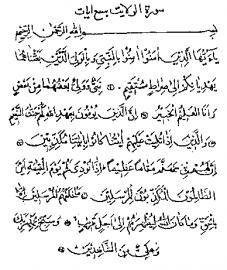 سورة الولايت سبع ايات
بسم الله الرحمن الرحيم
يا ايها الذين آمنوا آمنوا بالنبي وبالولي الذين بعثناهما
يهديانكم الى صراط مستقيم ۝ نبي وولي بعضهما من بعض
وانا العليم الخبير ۝ ان الذين يوفون بعهد الله لهم جنت النعيم
۝ والذين اذا تليت عليهم آياتنا كانوا باياتنا مكذبين ۝
ان لهم في جهنم مقاما عظيما اذا نودي لهم يوم القيمة اين
الظالمون المكذبون للمرسلين ۝ ما خلفهم المرسلين الا
بالحق وما كان الله ليظهرهم الى اجل قريب ۝ وسبح بحمد ربك
وعلي من الشاهدين ۝